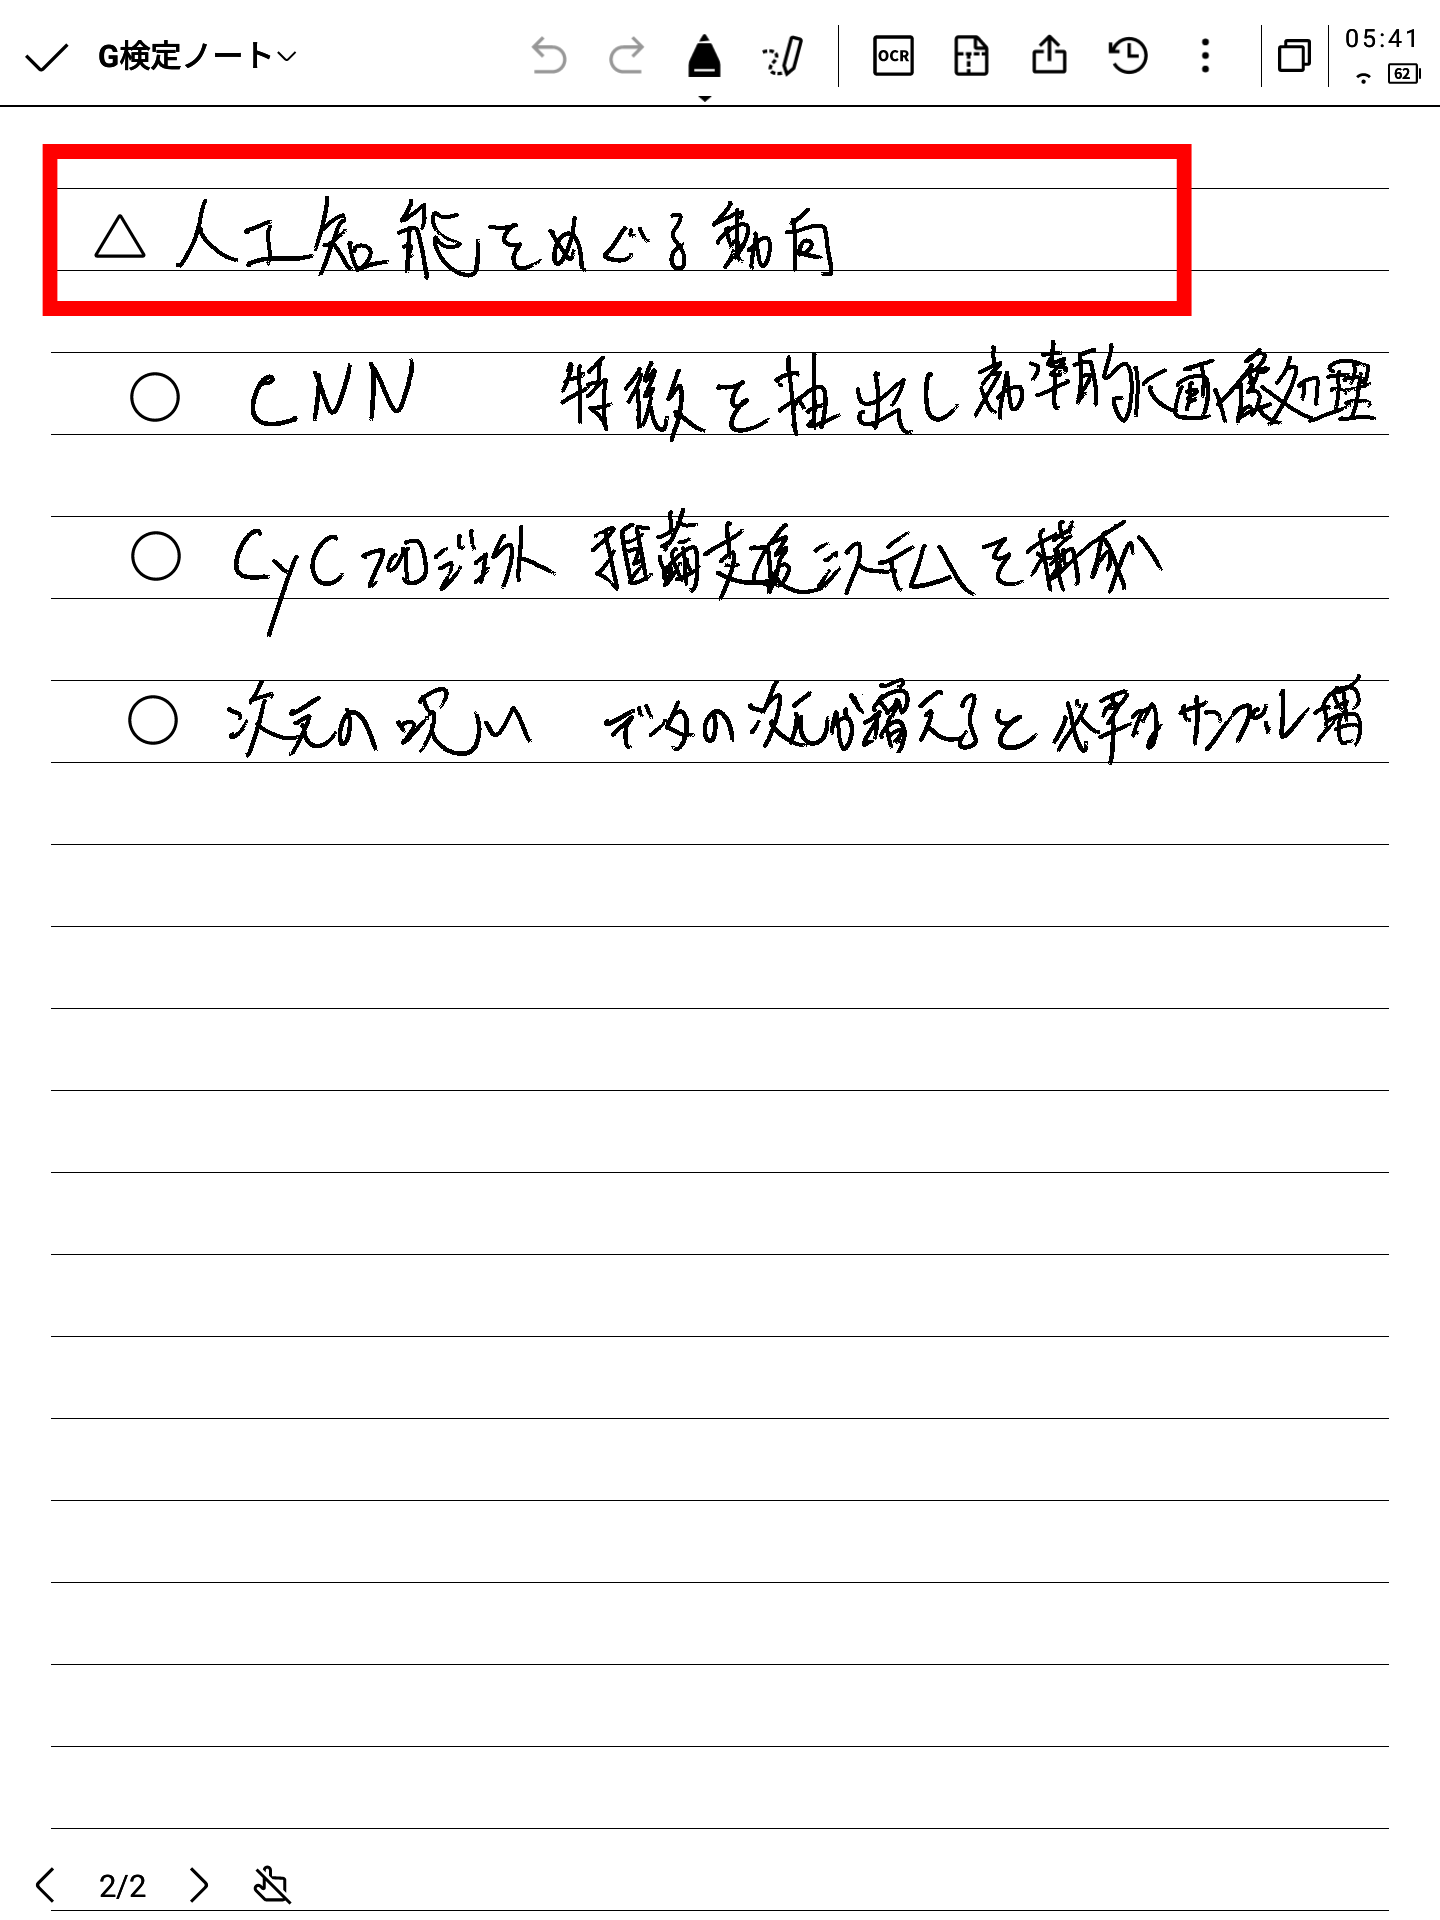 G検定ノート
OCR
05:41
62
△ 人工知能をめぐる動向
○ CNN 特徴を抽出し効率的に画像処理
○ CyCプロジェクト 推論支援システムを構成
○ 次元の呪い データの次元が増えると必要なサンプル増
2/2